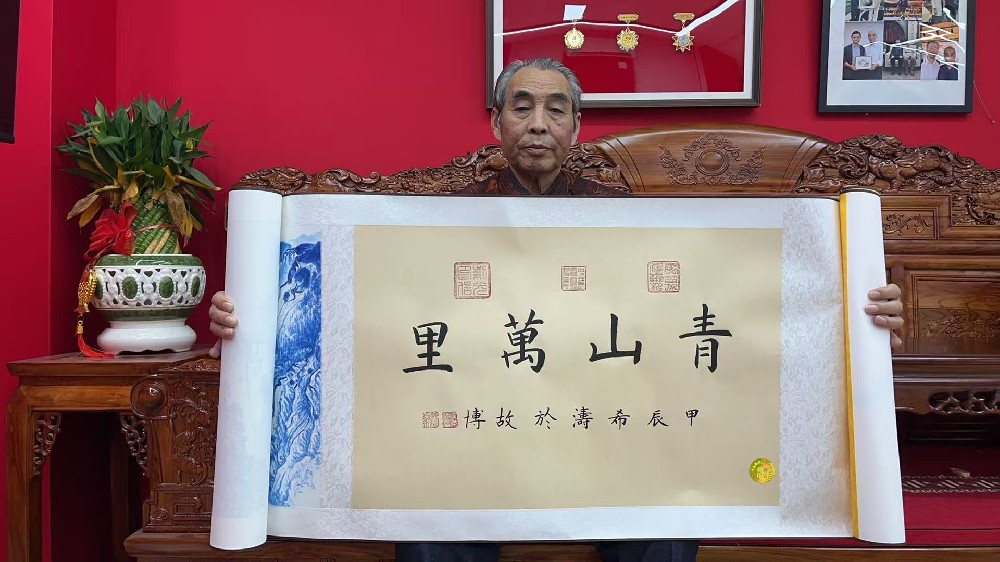 青山萬里
甲辰希濤於故博